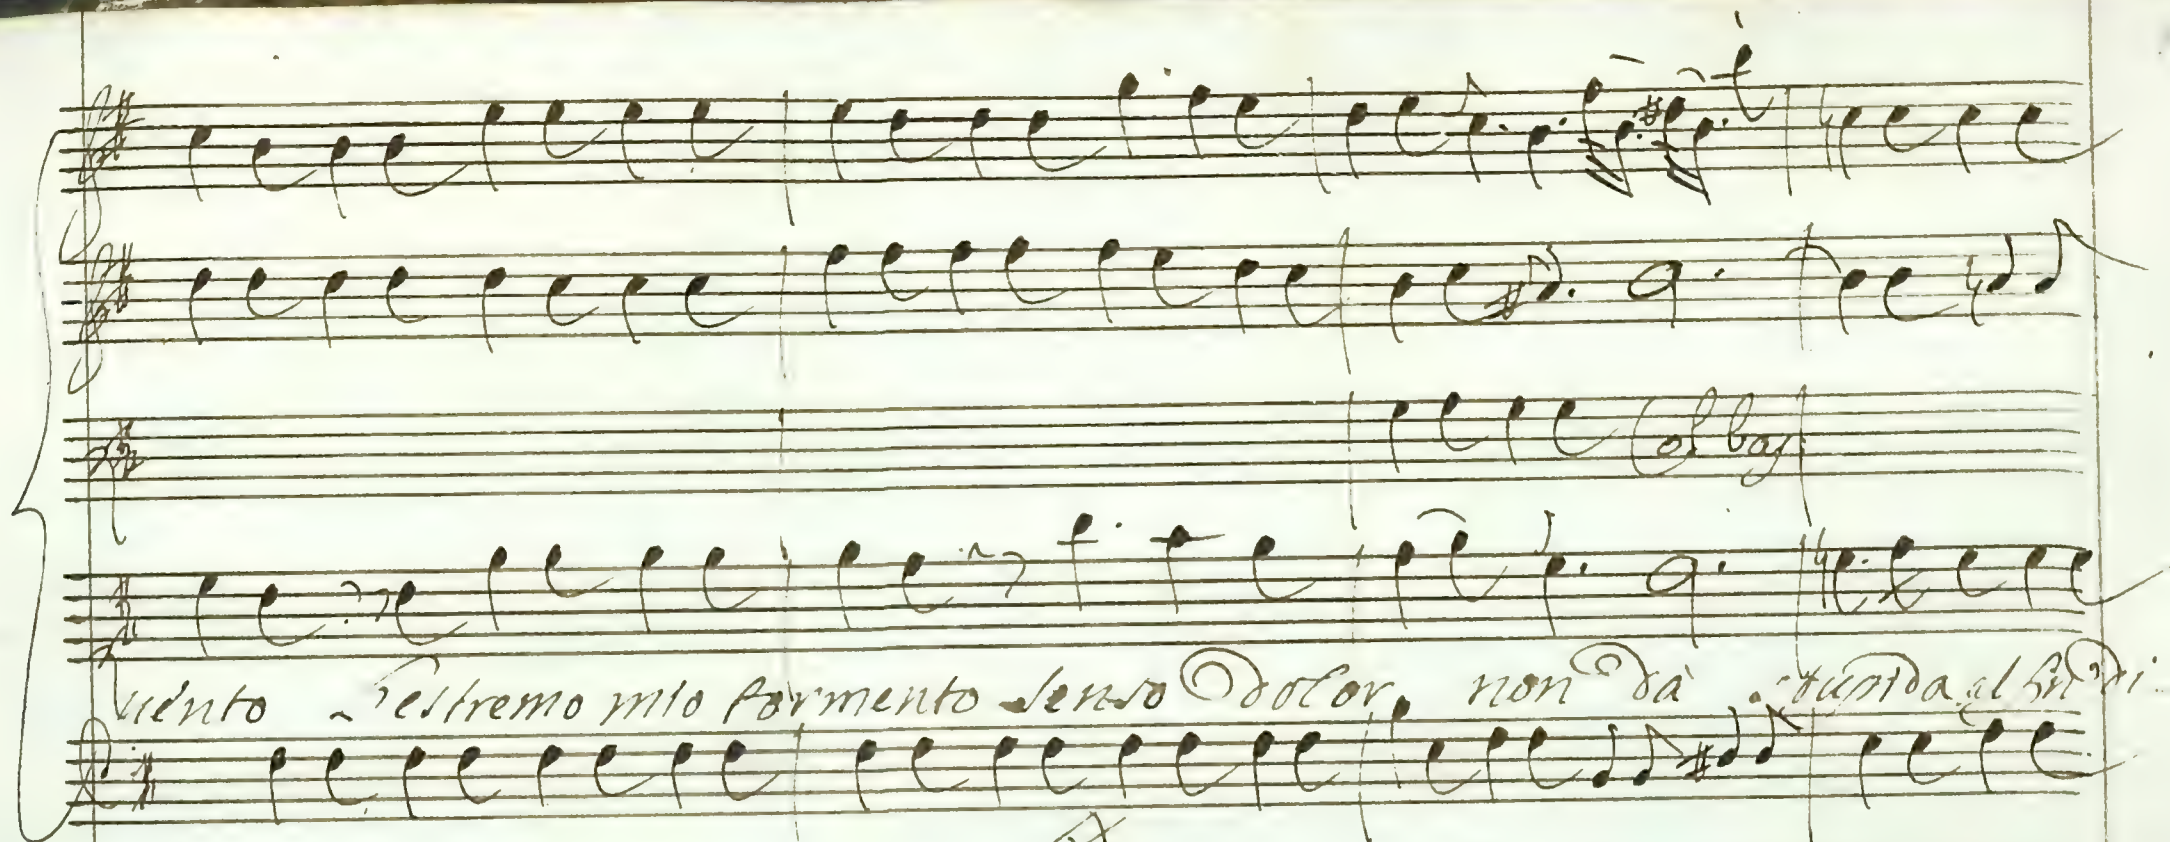 Col bas:
uento l'estremo mio tormento senso dolor, non dà stupida al fin di